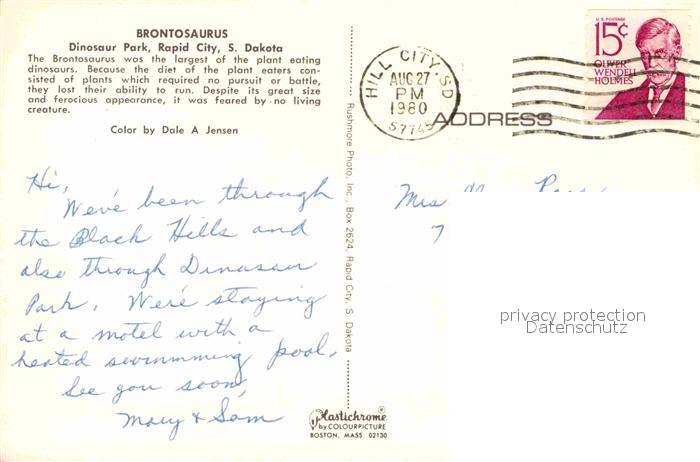 BRONTOSAURUS
Dinosaur Park, Rapid City, S. Dakota
The Brontosaurus was the largest of the plant eating
dinosaurs. Because the diet of the plant eaters con-
sisted of plants which required no pursuit or battle,
they lost their ability to run. Despite its great size
and ferocious appearance, it was feared by no living
creature.
Color by Dale A Jensen
Hi,
We've been through
the Black Hills and
also through Dinasaur
Park. We're staying
at a motel with a
heated swimming pool.
See you soon,
Mary & Sam
Rushmore Photo, Inc., Box 2624, Rapid City, S. Dakota
Plastichrome
by COLOURPICTURE
BOSTON, MASS. 02130
HILL CITY SD
AUG 27
PM
1980
57745
U.S. POSTAGE
15¢
OLIVER
WENDELL
HOLMES
ADDRESS
Mrs
7
privacy protection
Datenschutz